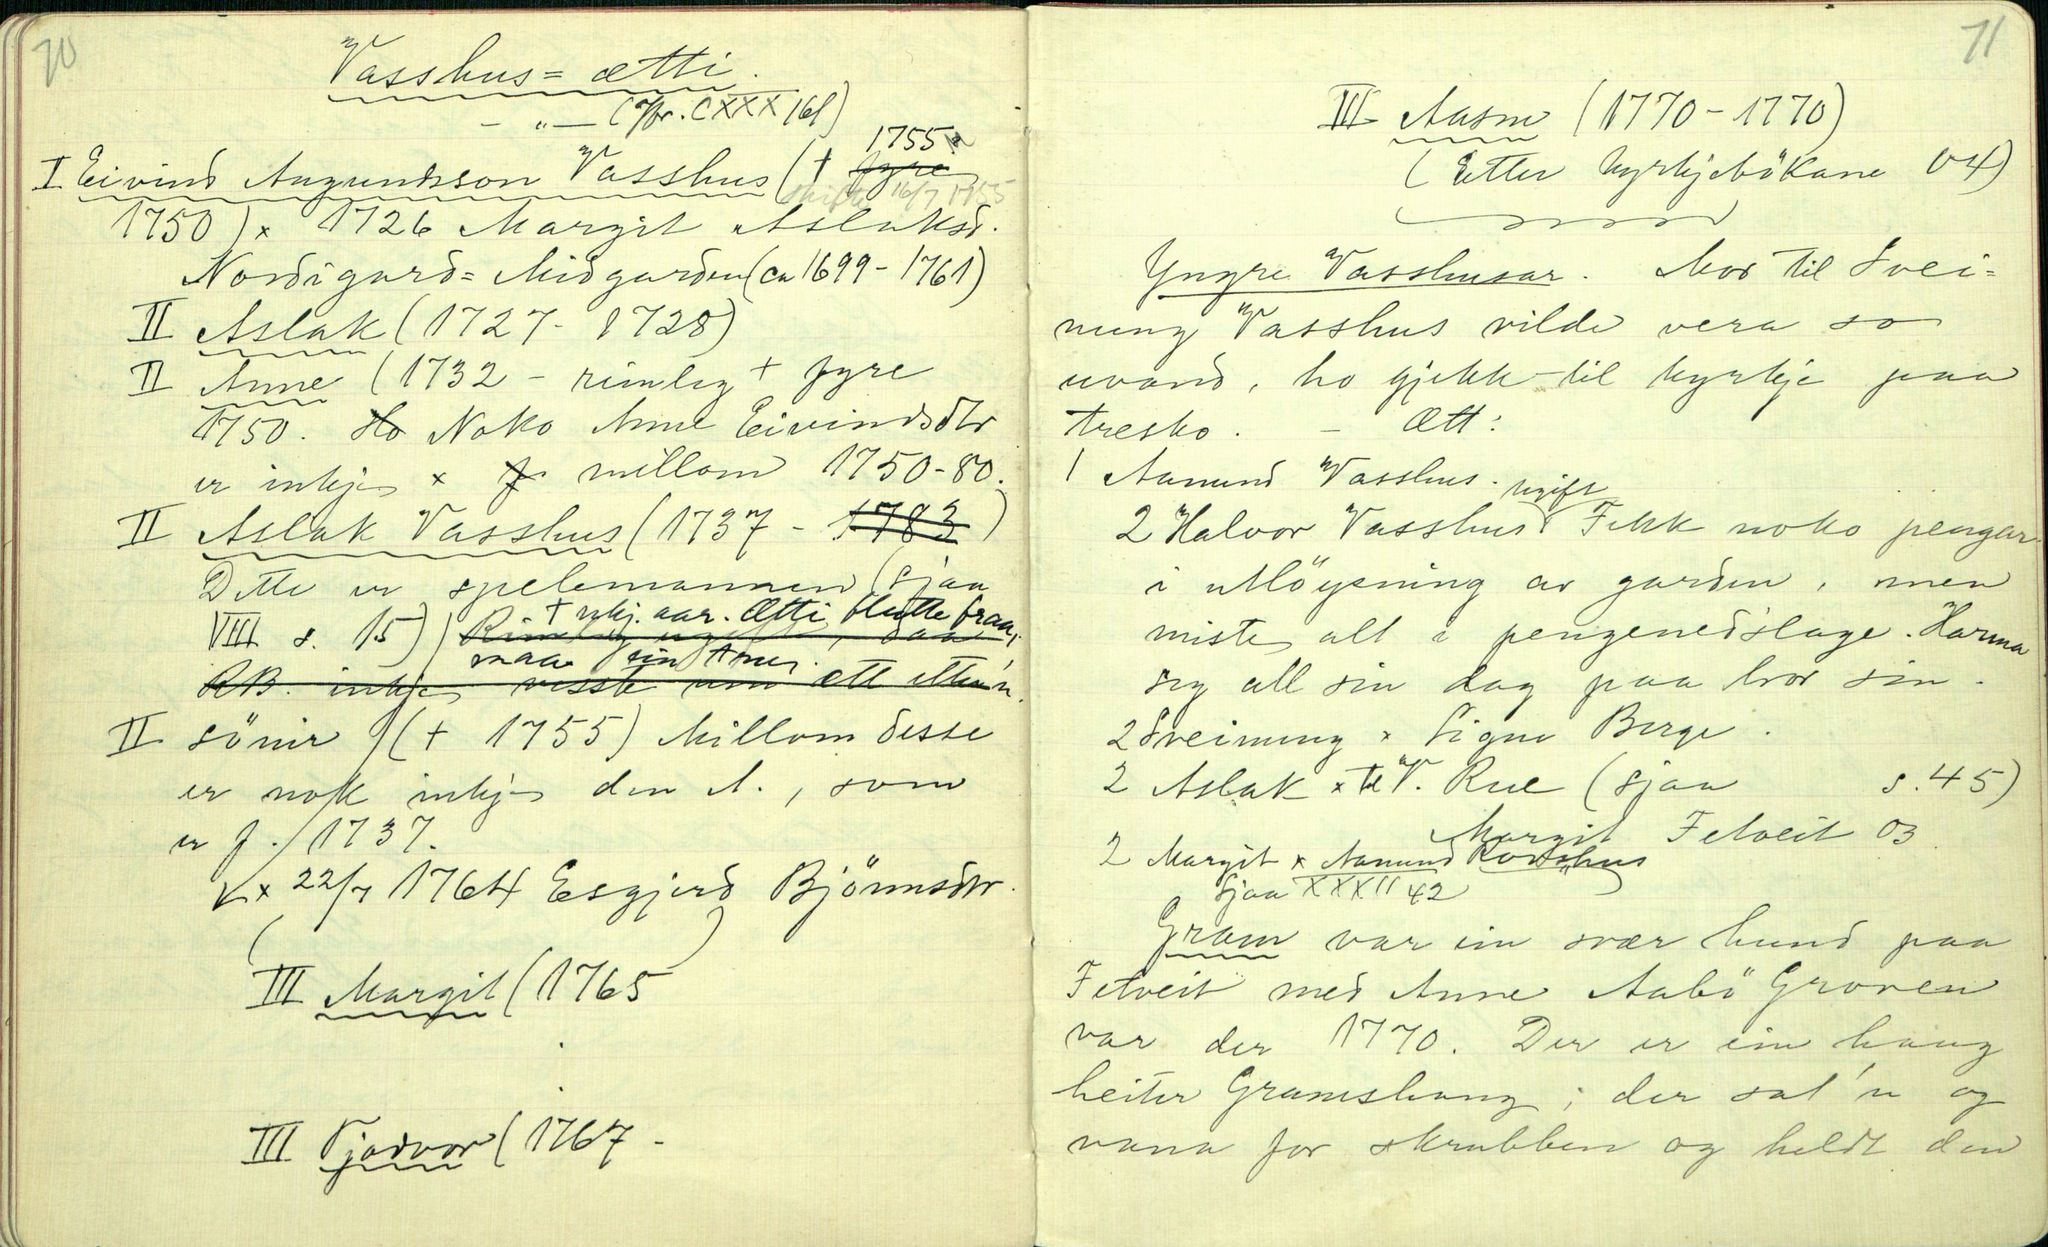 70
Vasshus=ætti.
— „ — (Jfr. CXXX 161)
1755
I Eivind Augundsson Vasshus († fyre
skifte 16/7 1755
1750) × 1726 Margit Aslaksd.
Nordigard=Midgarden (ca 1699-1761)
II Aslak (1727-1728)
II Anne (1732 - rimleg † fyre
1750. Ho Noko Anne Eivindsdtr
er inkje × f millom 1750-80.
II Aslak Vasshus (1737 - 1783)
Dette er spelemannen (sjaa
† ukj. aar. Ætti flutte fraa,
VIII s. 15)
maa
RB. inkje visste um ætt etter'n.
II söner († 1755) Millom desse
er nok inkje den A., som
er f. 1737.
× 22/7 1764 Esgjerd Björnsdtr.
III Margit (1765
III Tjodvor (1767 -
71
III Aasne (1770-1770)
(Etter kyrkjebökane 04)
Yngre Vasshusar. Mor til Svei=
nung Vasshus vilde vera so
uvand, ho gjekk til kyrkje paa
tresko. - Ætt:
1 Aamund Vasshus.
ugift
2 Halvor Vasshus Fekk noko pengar
i utlöysning av garden, men
miste alt i pengenedslage. Harma
seg all sin dag paa bror sin.
2 Sveinung × Signe Berge.
2 Aslak × til V. Rue (sjaa s. 45)
Margit Fetveit 03
2 Margit × Aamund Rovshus
sjaa XXXII 42
Gram var ein svær hund paa
Fetveit med Anne Aabö Groven
var der 1770. Der er ein haug
heiter Gramshaug; der sat'n og
vara for skrubben og heldt den